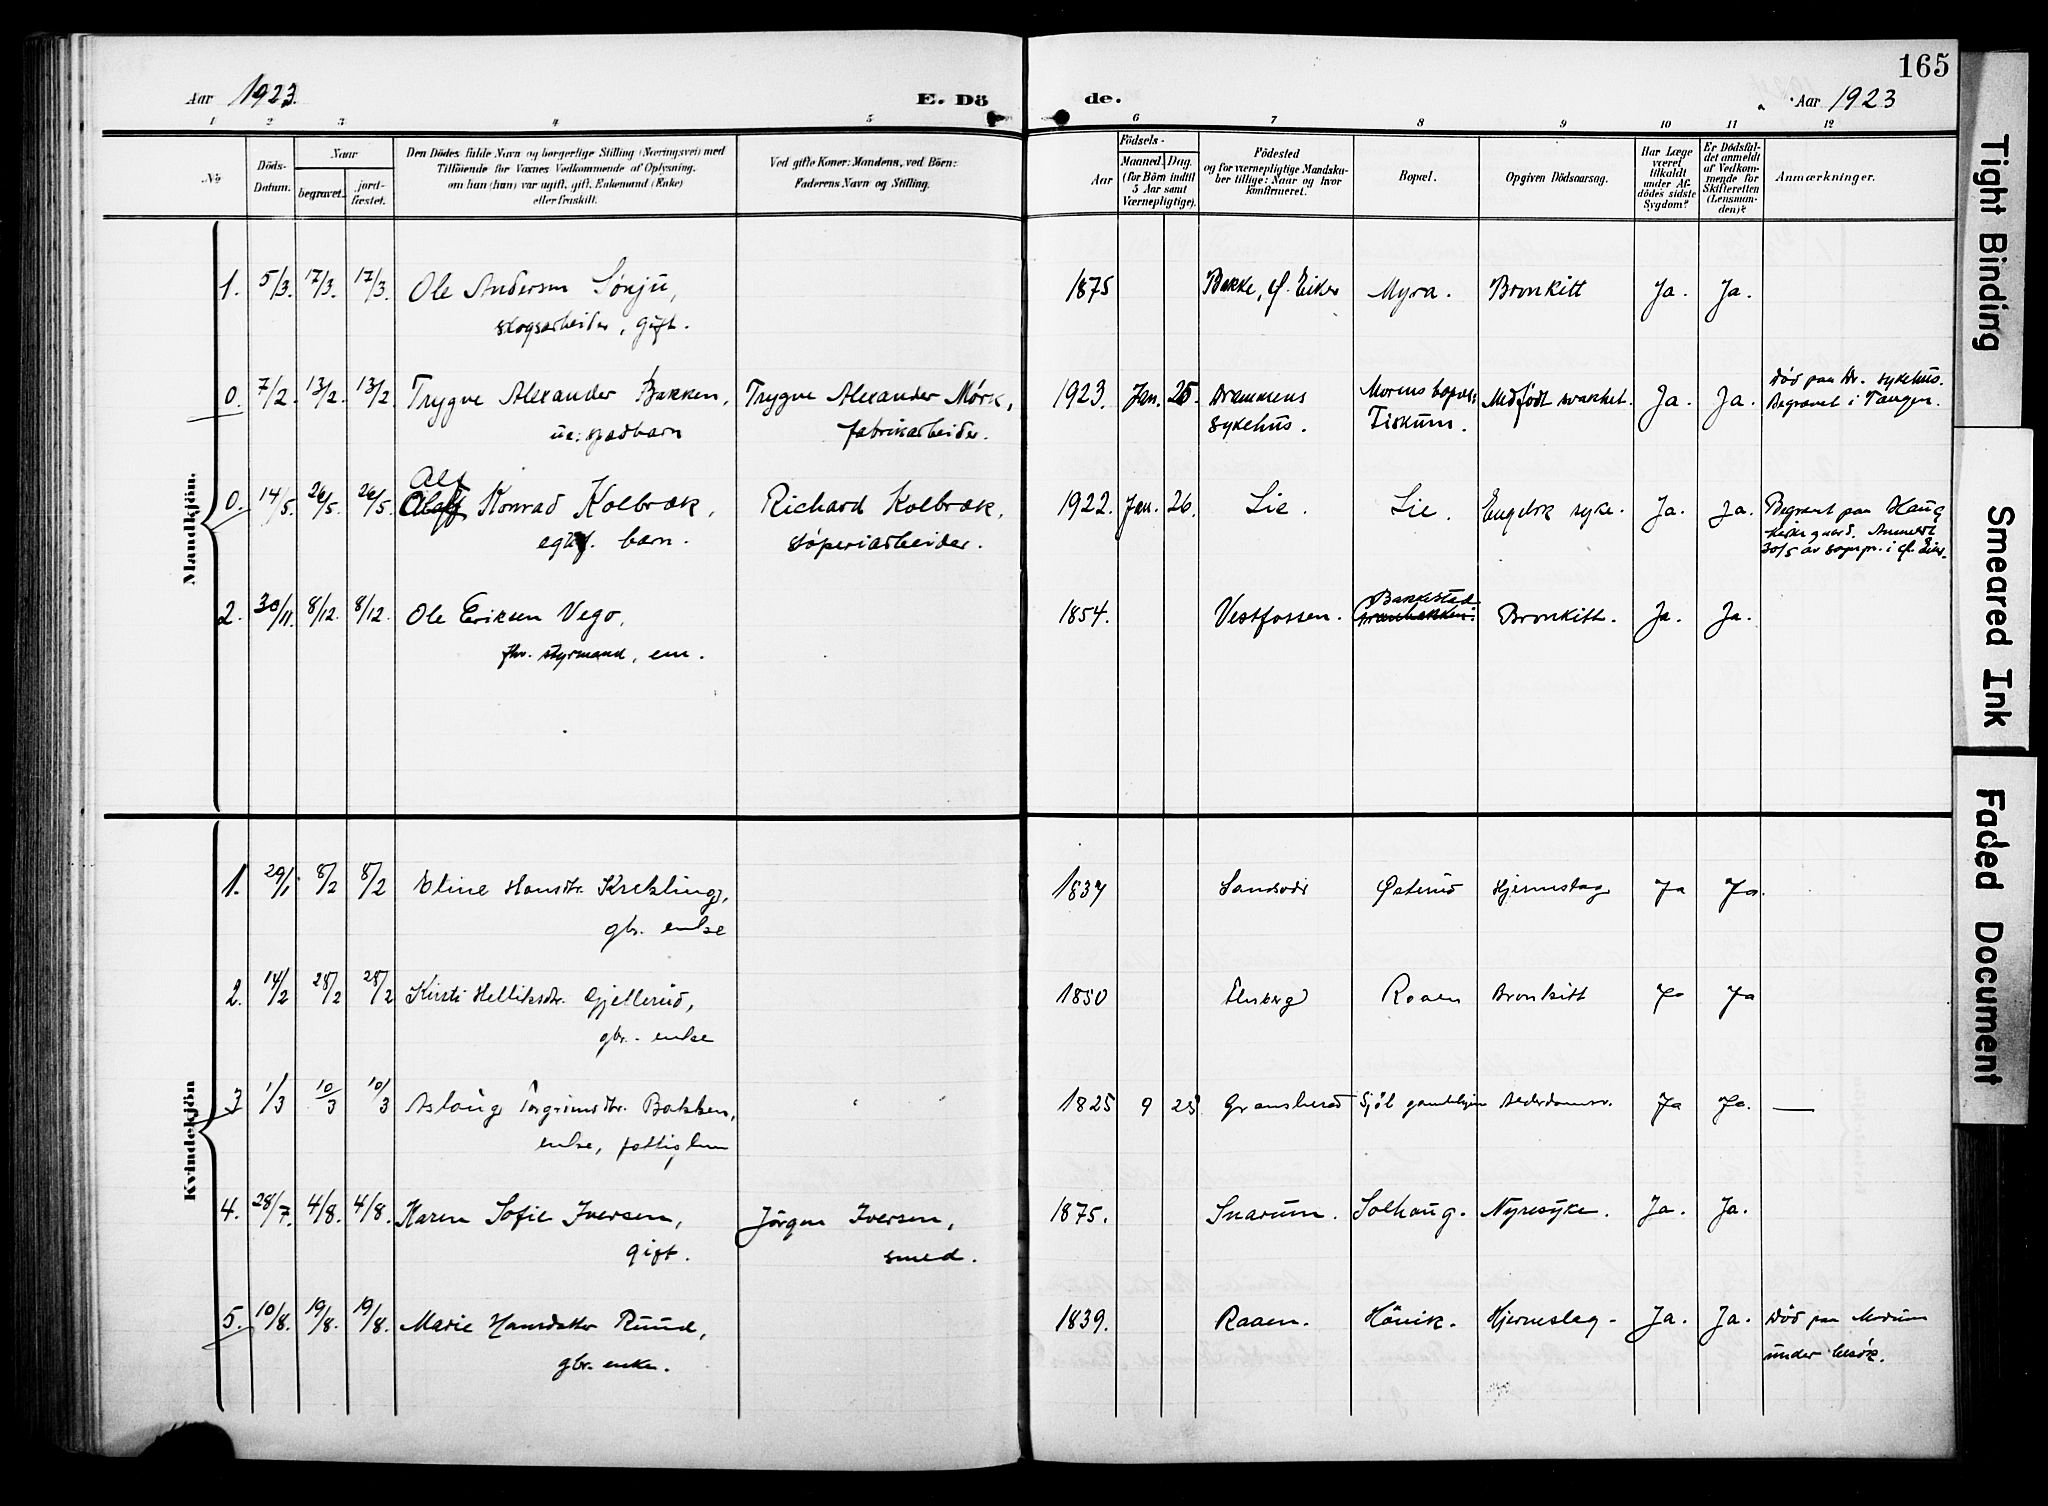 Aar 1923. E. Dö de. Aar 1923
165
1 2 3 4 5 6 7 8 9 10 11 12
No
Döds-Datum.
Naar
begravet.
jord-fæstet.
Den Dödes fulde Navn og borgerlige Stilling (Næringsvei) med
Tilföiende for Voxnes Vedkommende af Oplysning,
om han (hun) var ugift, gift, Enkemand (Enke)
eller fraskilt.
Ved gifte Koner: Mandens, ved Börn:
Faderens Navn og Stilling.
Födsels-
Aar
Maaned. Dag.
(for Börn indtil
5 Aar samt
Værnepligtige).
Födested
og for værnepligtige Mandskaber tillige: Naar og hvor
konfirmeret.
Bopæl.
Opgiven Dödsaarsag.
Har Læge
været
tilkaldt
under Afdödes sidste
Sygdom?
Er Dödsfaldet anmeldt
af Vedkommende for
Skifteretten
(Lensmanden)?
Anmærkninger.
Mandkjön.
1. 5/3. 17/3. 17/3. Ole Andersen Sønju, 1875 Bakke, Ø. Eiker Myra. Bronkitt Ja. Ja.
skogsarbeider, gift.
0. 7/2. 13/2. 13/2. Trygve Alexander Bakken, Trygve Alexander Mørk, 1923. Jan. 25. Drammens Morens bopæl: Medfødt svakhet. Ja. Ja. Död paa Dr. sykehus.
ue: spædbarn fabrikarbeider. sykehus. Fiskum. Begravet i Tangen.
Alf
0. 14/5. 26/5. 26/5. Konrad Kolbræk, Richard Kolbræk, 1922. Jan. 26. Lie. Lie. Engelsk syke. Ja. Ja. Begravet paa Haug
egtef. barn. søperiarbeider. kirkegaard. Anmeldt
30/5 av sognepr. i Ø. Eiker.
2. 30/11. 8/12. 8/12. Ole Eriksen Vego, 1854. Vestfossen. Bakkestad Bronkitt. Ja. Ja.
fhv. styrmand, em.
Kvindekjön
1. 29/1. 8/2 8/2 Eline Hansdtr. Krekling, 1837 Østerud Hjerneslag Ja Ja.
gbr. enke
2. 14/2 28/2 28/2 Kirsti Helliksdtr. Gjellerud, 1850 Flesberg Raaen Bronkitt Ja Ja
gbr. enke
3 1/3 10/3 10/3 Aslaug Torgrimsdtr. Bakken, 1825 9 25 Gransherad Ja Ja. —
enke, fattiglem
4. 28/7. 4/8. 4/8. Karen Sofie Iversen, Jörgen Iversen, 1875. Snarum. Solhaug. Nyresyke. Ja. Ja.
gift. smed.
5. 10/8. 19/8. 19/8. Marie Hansdatter Ruud, 1839. Raaen. Hönik. Hjerneslag. Ja. Ja. Död paa Modum
gbr. enke. under besök.
Tight Binding
Smeared Ink
Faded Document